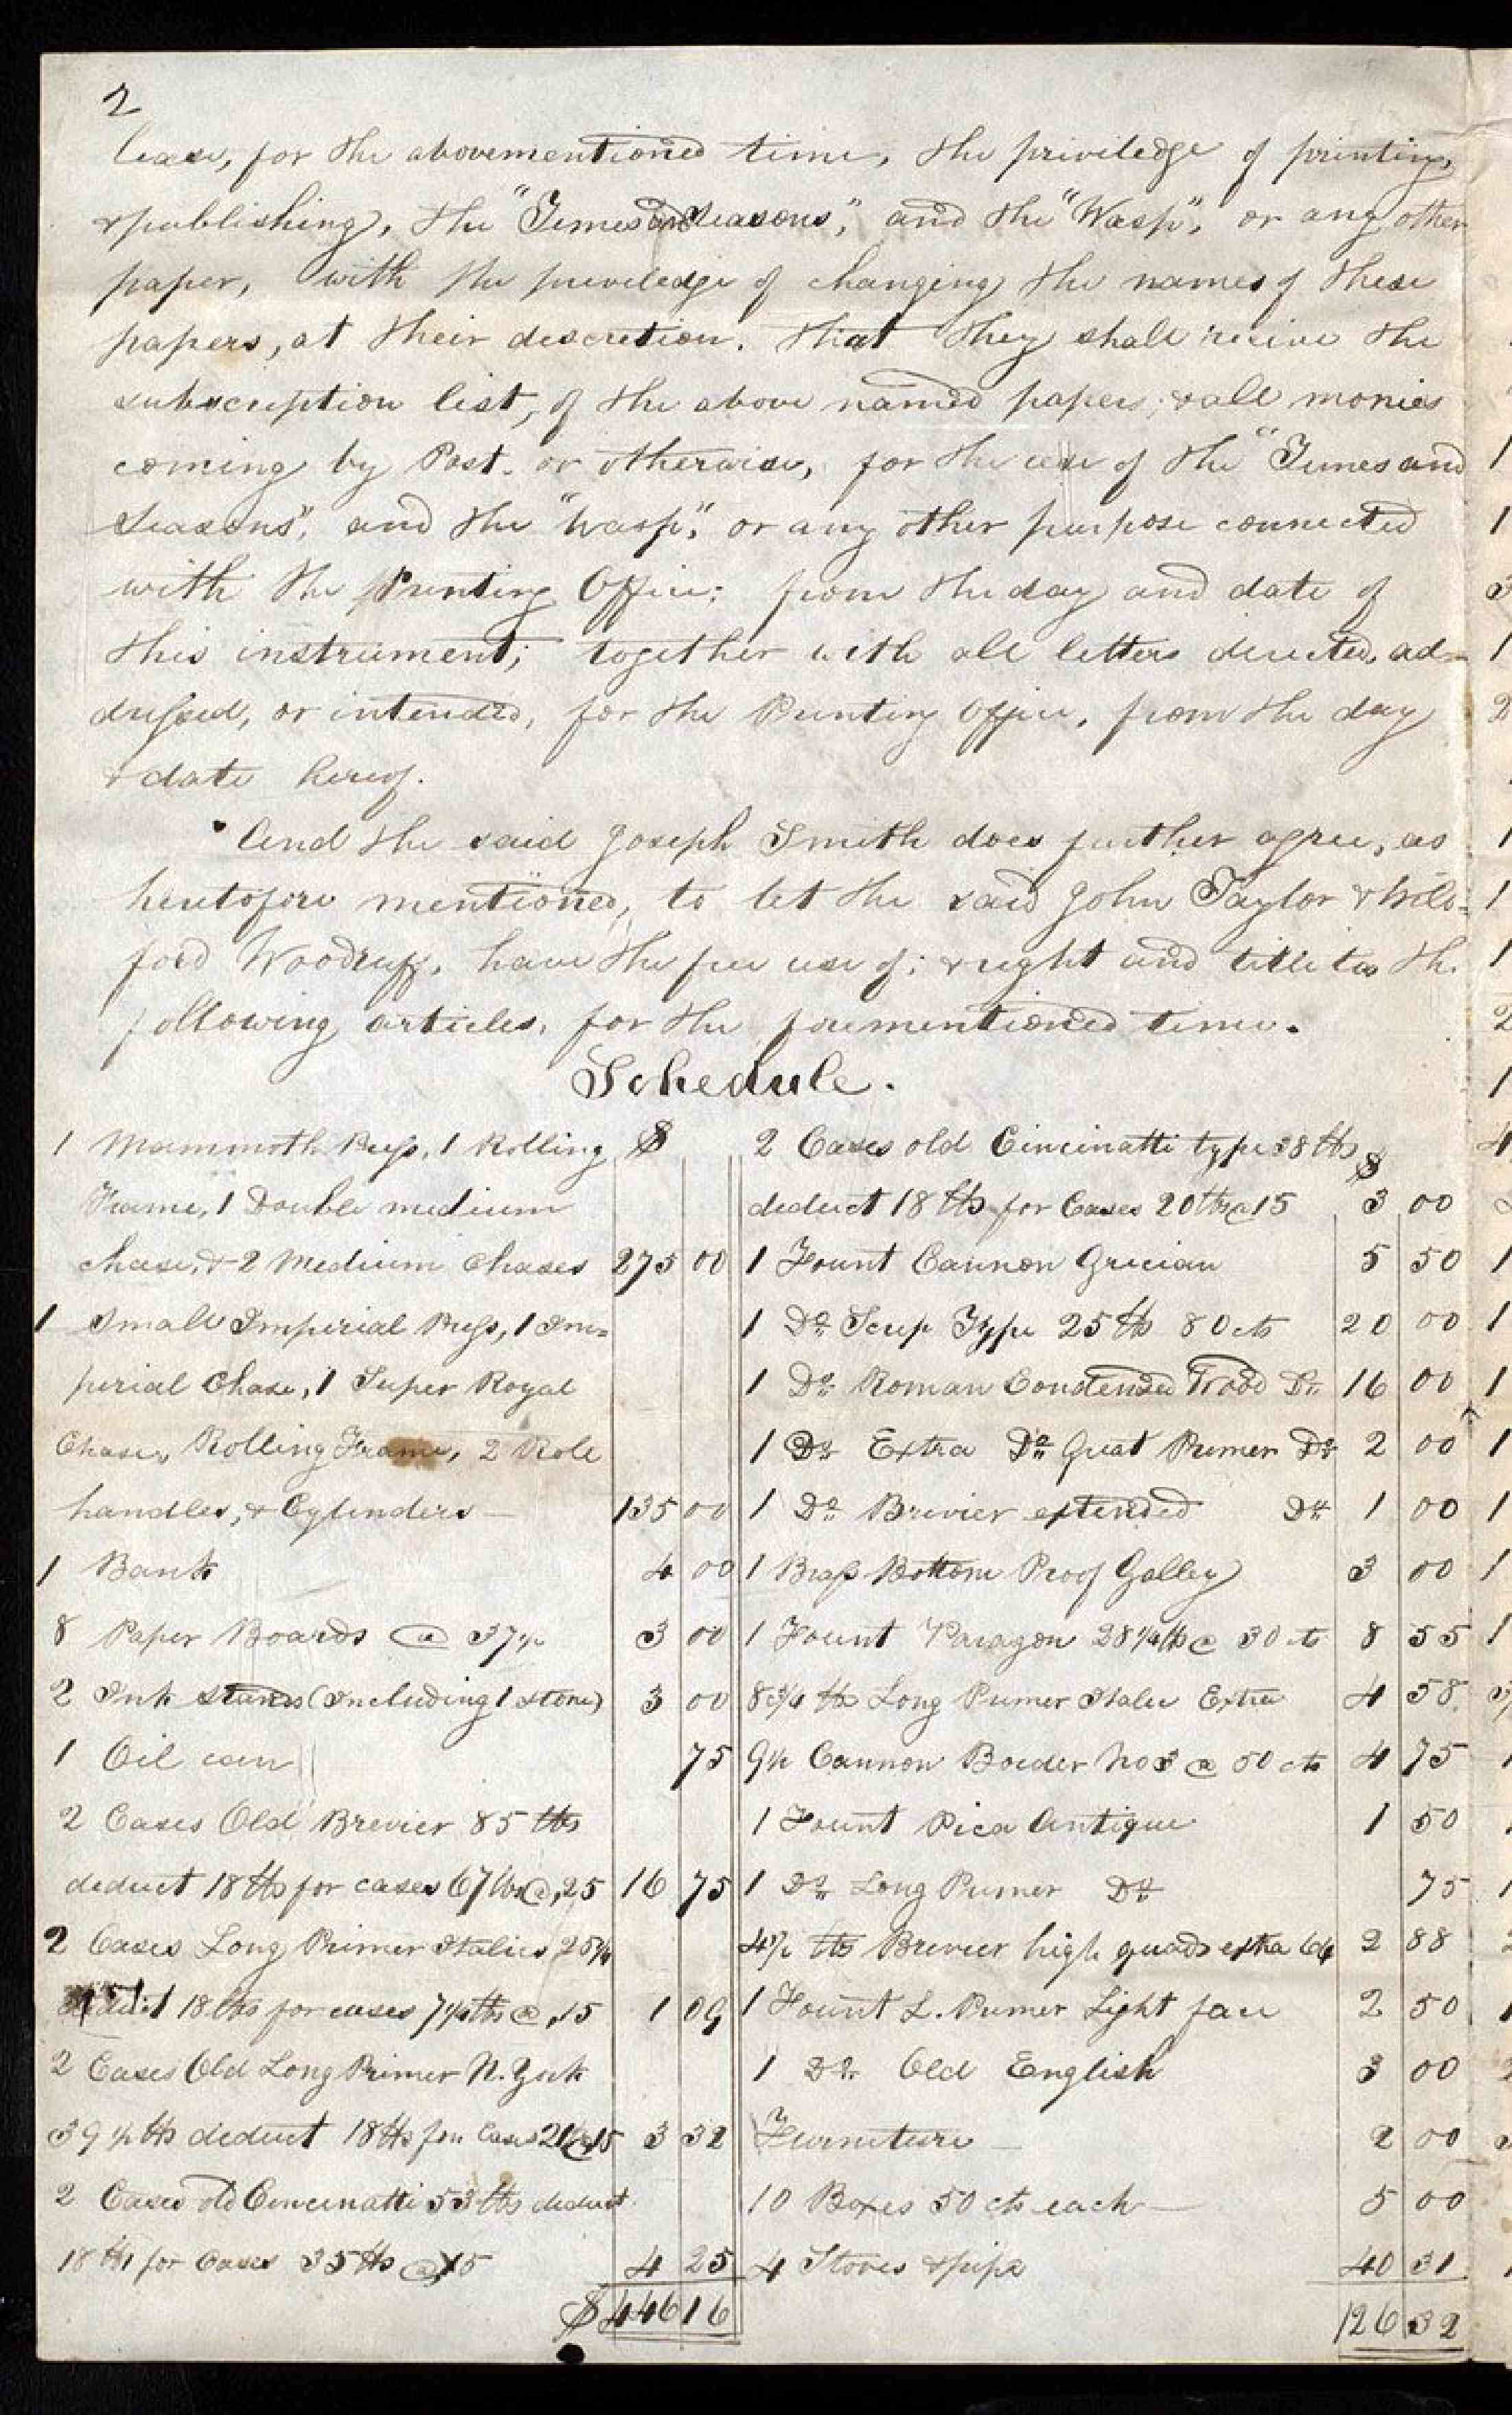 2
lease, for the abovementioned time, the priviledge of printing,
& publishing, the "Times and Seasons", and the "Wasp", or any other
paper, with the priveledge of changing the names of these
papers, at their descretion. That they shall recive the
subscription list, of the above named papers; & all monies
coming by Post. or otherwise, for the use of the "Times and
Seasons", and the "Wasp", or any other purpose connected
with the Printing Office; from the day and date of
this instrument; together with all letters directed, ad-
dressed, or intended, for the Printing Office, from the day
& date hereof.
And the said Joseph Smith does further agree, as
heretofore mentioned, to let the said John Taylor & Wil=
ford Woodruff, have the free use of; & right and title to the
following articles, for the forementioned time.
Schedule.
1 Mammoth Press, 1 Rolling $
Frame, 1 Double medium
chase, & 2 Medium Chases 275 00
1 Small Imperial Press, 1 Im=
perial Chase, 1 Super Royal
Chase, Rolling Frame, 2 Role
handles, & Cylinders — 135 00
1 Bank 4 00
8 Paper Boards @ 37½ 3 00
2 Ink stands (Including 1 stone) 3 00
1 Oil can 75
2 Cases Old Brevier 85 lbs
deduct 18 lbs for cases 67 lbs @ ,25 16 75
2 Cases Long Primer Italics 25¼
deduct 18 lbs for cases 7¼ lbs @ ,15 1 09
2 Cases Old Long Primer N. York
39½ lbs deduct 18 lbs for Cases 21½ @ 15 3 32
2 Cases old Cincinatti 53 lbs deduct
18 lbs for Cases 35 lbs @ 15 4 25
$446 16
2 Cases old Cincinatti type 38 lbs $
deduct 18 lbs for Cases 20 lbs @ 15 3 00
1 Fount Cannon Grecian 5 50
1 Do Scrip Type 25 lb 80 cts 20 00
1 Do Roman Condensed Wood Do 16 00
1 Do Extra Do Great Primer Do 2 00
1 Do Brevier extended Do 1 00
1 Brass Bottom Proof Galley 3 00
1 Fount Paragon 28½ lb @ 30 cts 8 55
8¾ lbs Long Primer Italic Extra 4 58
9½ Cannon Border No 3 @ 50 cts 4 75
1 Fount Pica Antique 1 50
1 Do Long Primer Do 75
4½ lbs Brevier high quads extra 64 2 88
1 Fount L. Primer Light face 2 50
1 Do Old English 3 00
Furniture — 2 00
10 Boxes 50 cts each — 5 00
4 Stoves & pipe 40 31
126 32